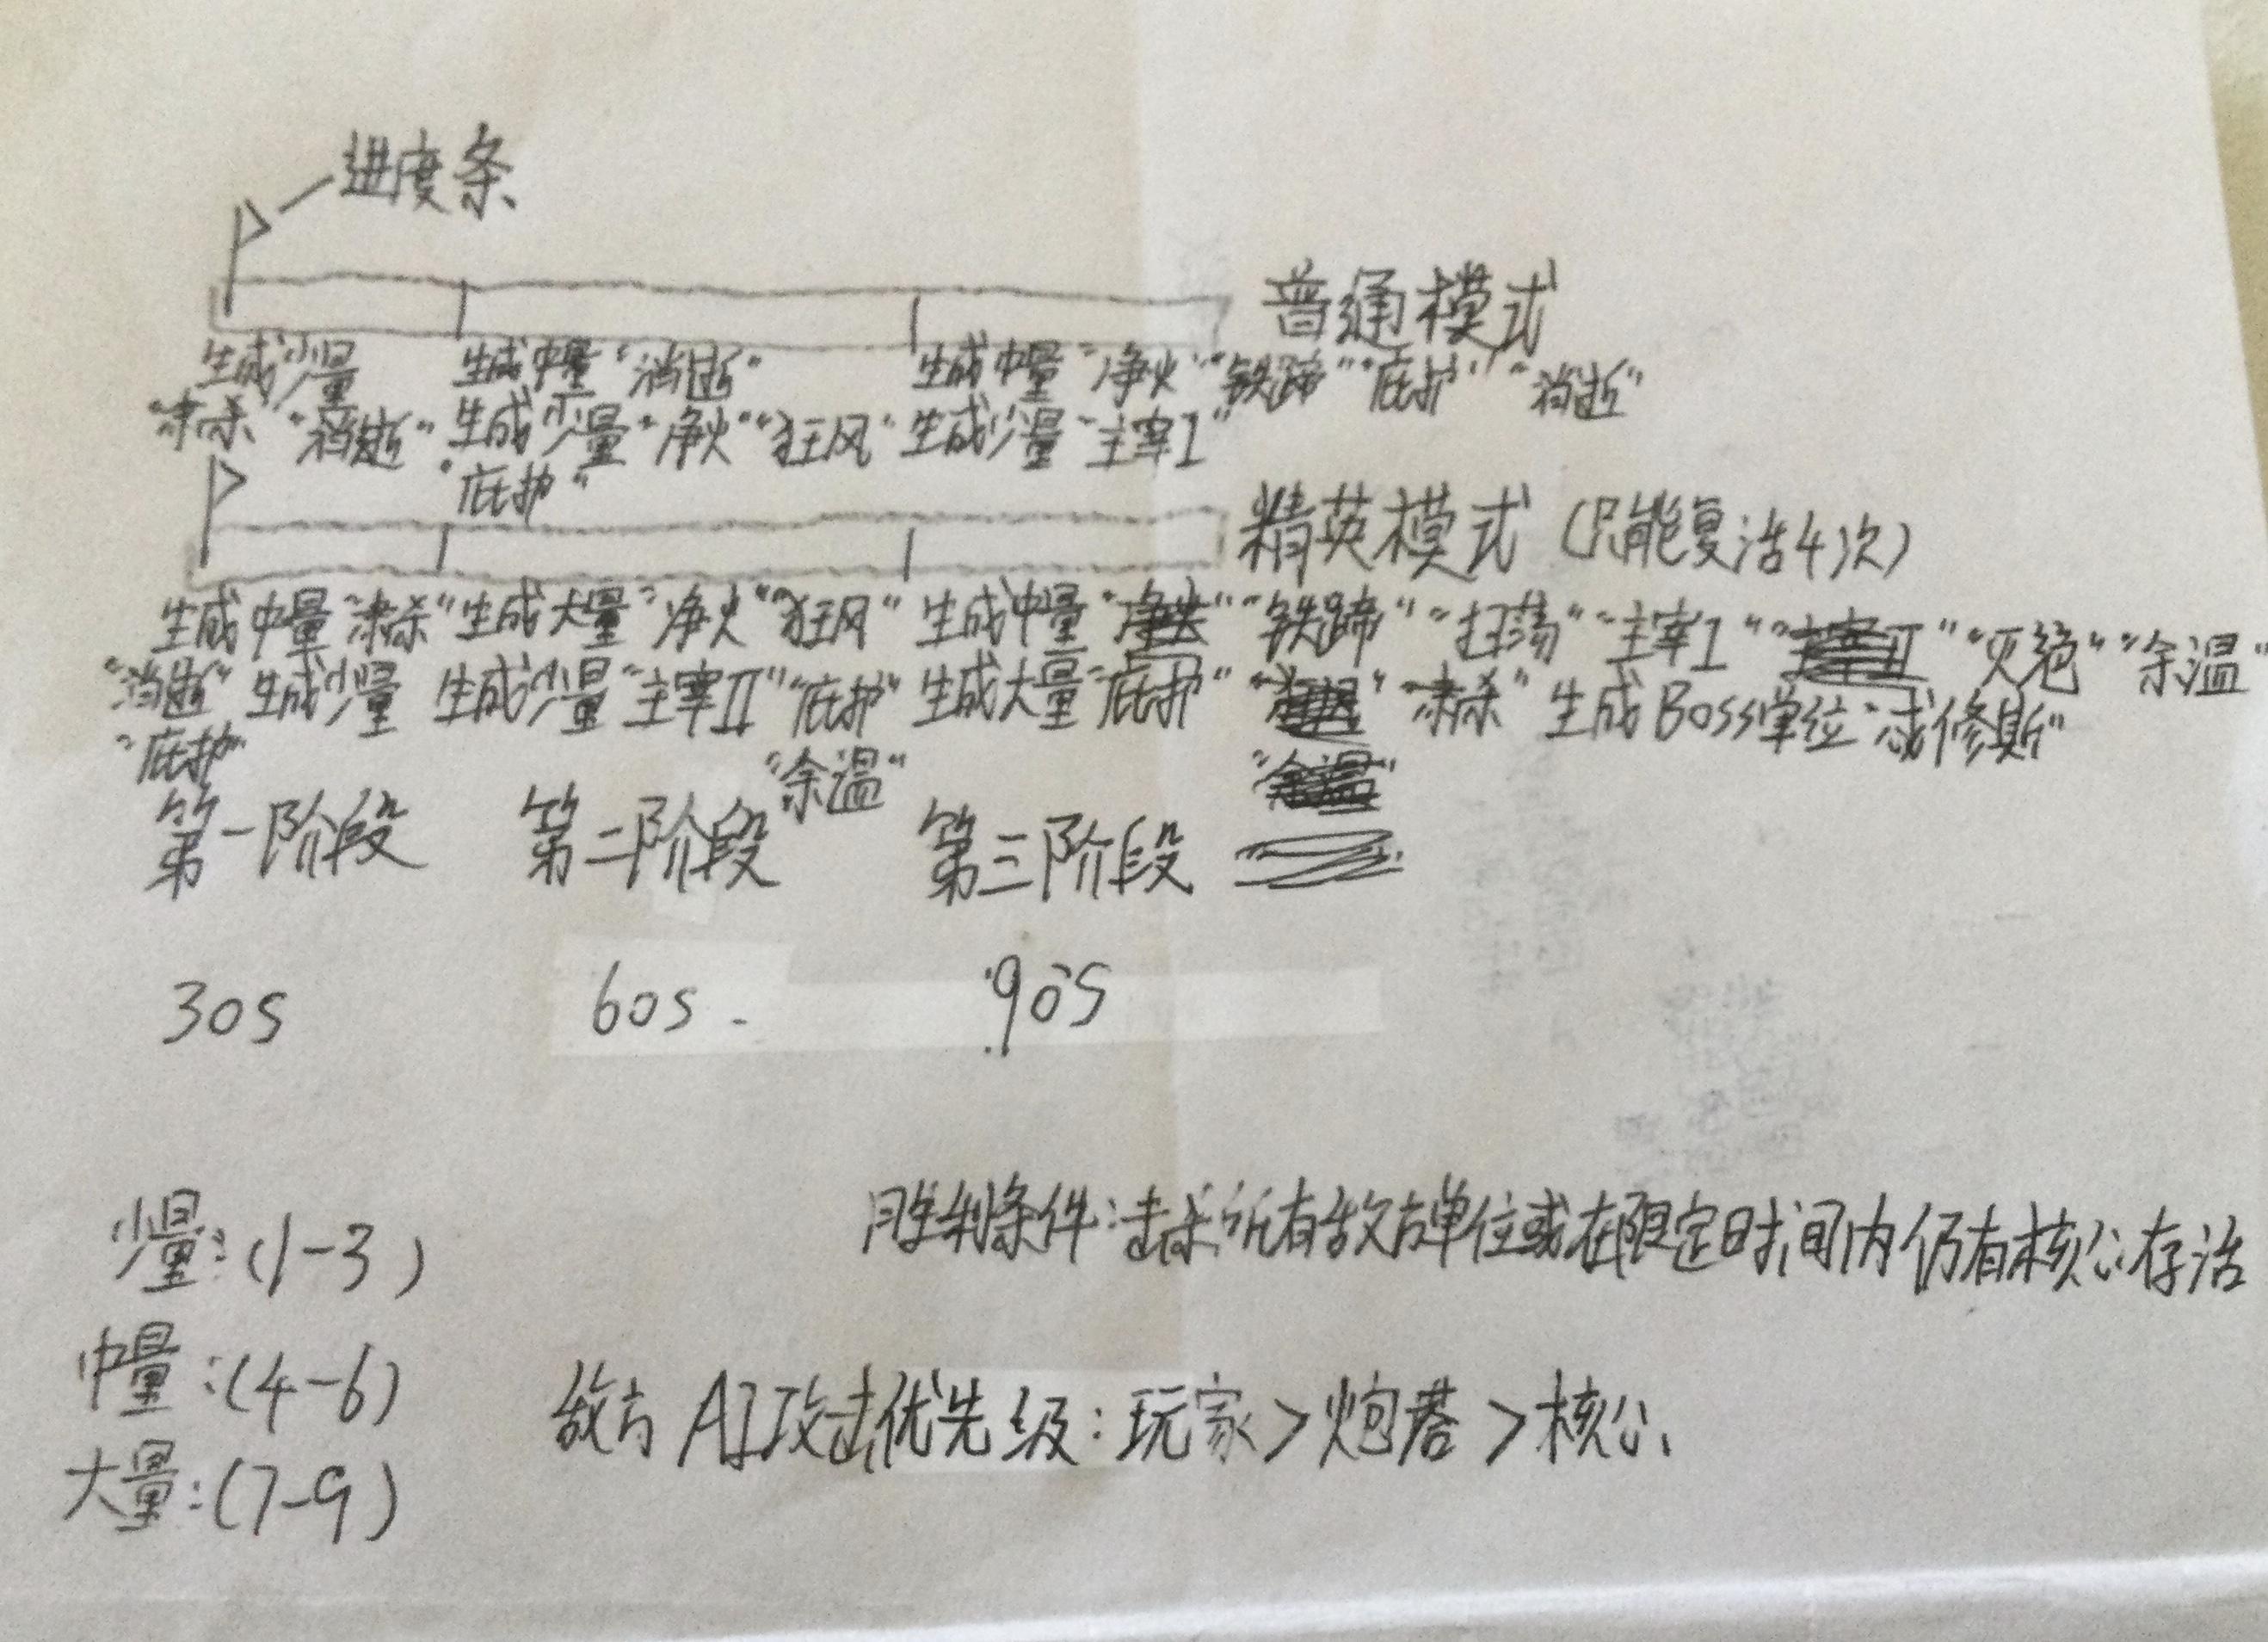 进度条
普通模式
生成少量 生成中量“消逝” 生成中量“净火”“铁蹄”“庇护”“消逝”
“肃杀”“消逝” 生成少量“净火”“狂风” 生成少量“主宰I”
“庇护”
精英模式(只能复活4次)
生成中量“肃杀” 生成大量“净火”“狂风” 生成中量“铁蹄”“扫荡”“主宰I”“灭绝”“余温”
“消逝”生成少量 生成少量“主宰II”“庇护” 生成大量“庇护”“肃杀”生成Boss单位“忒修斯”
“庇护”
“余温”
第一阶段 第二阶段 第三阶段
30s 60s 90s
少量:(1-3)
胜利条件:击杀所有敌方单位或在限定时间内仍有核心存活
中量:(4-6)
敌方AI攻击优先级:玩家>炮塔>核心
大量:(7-9)